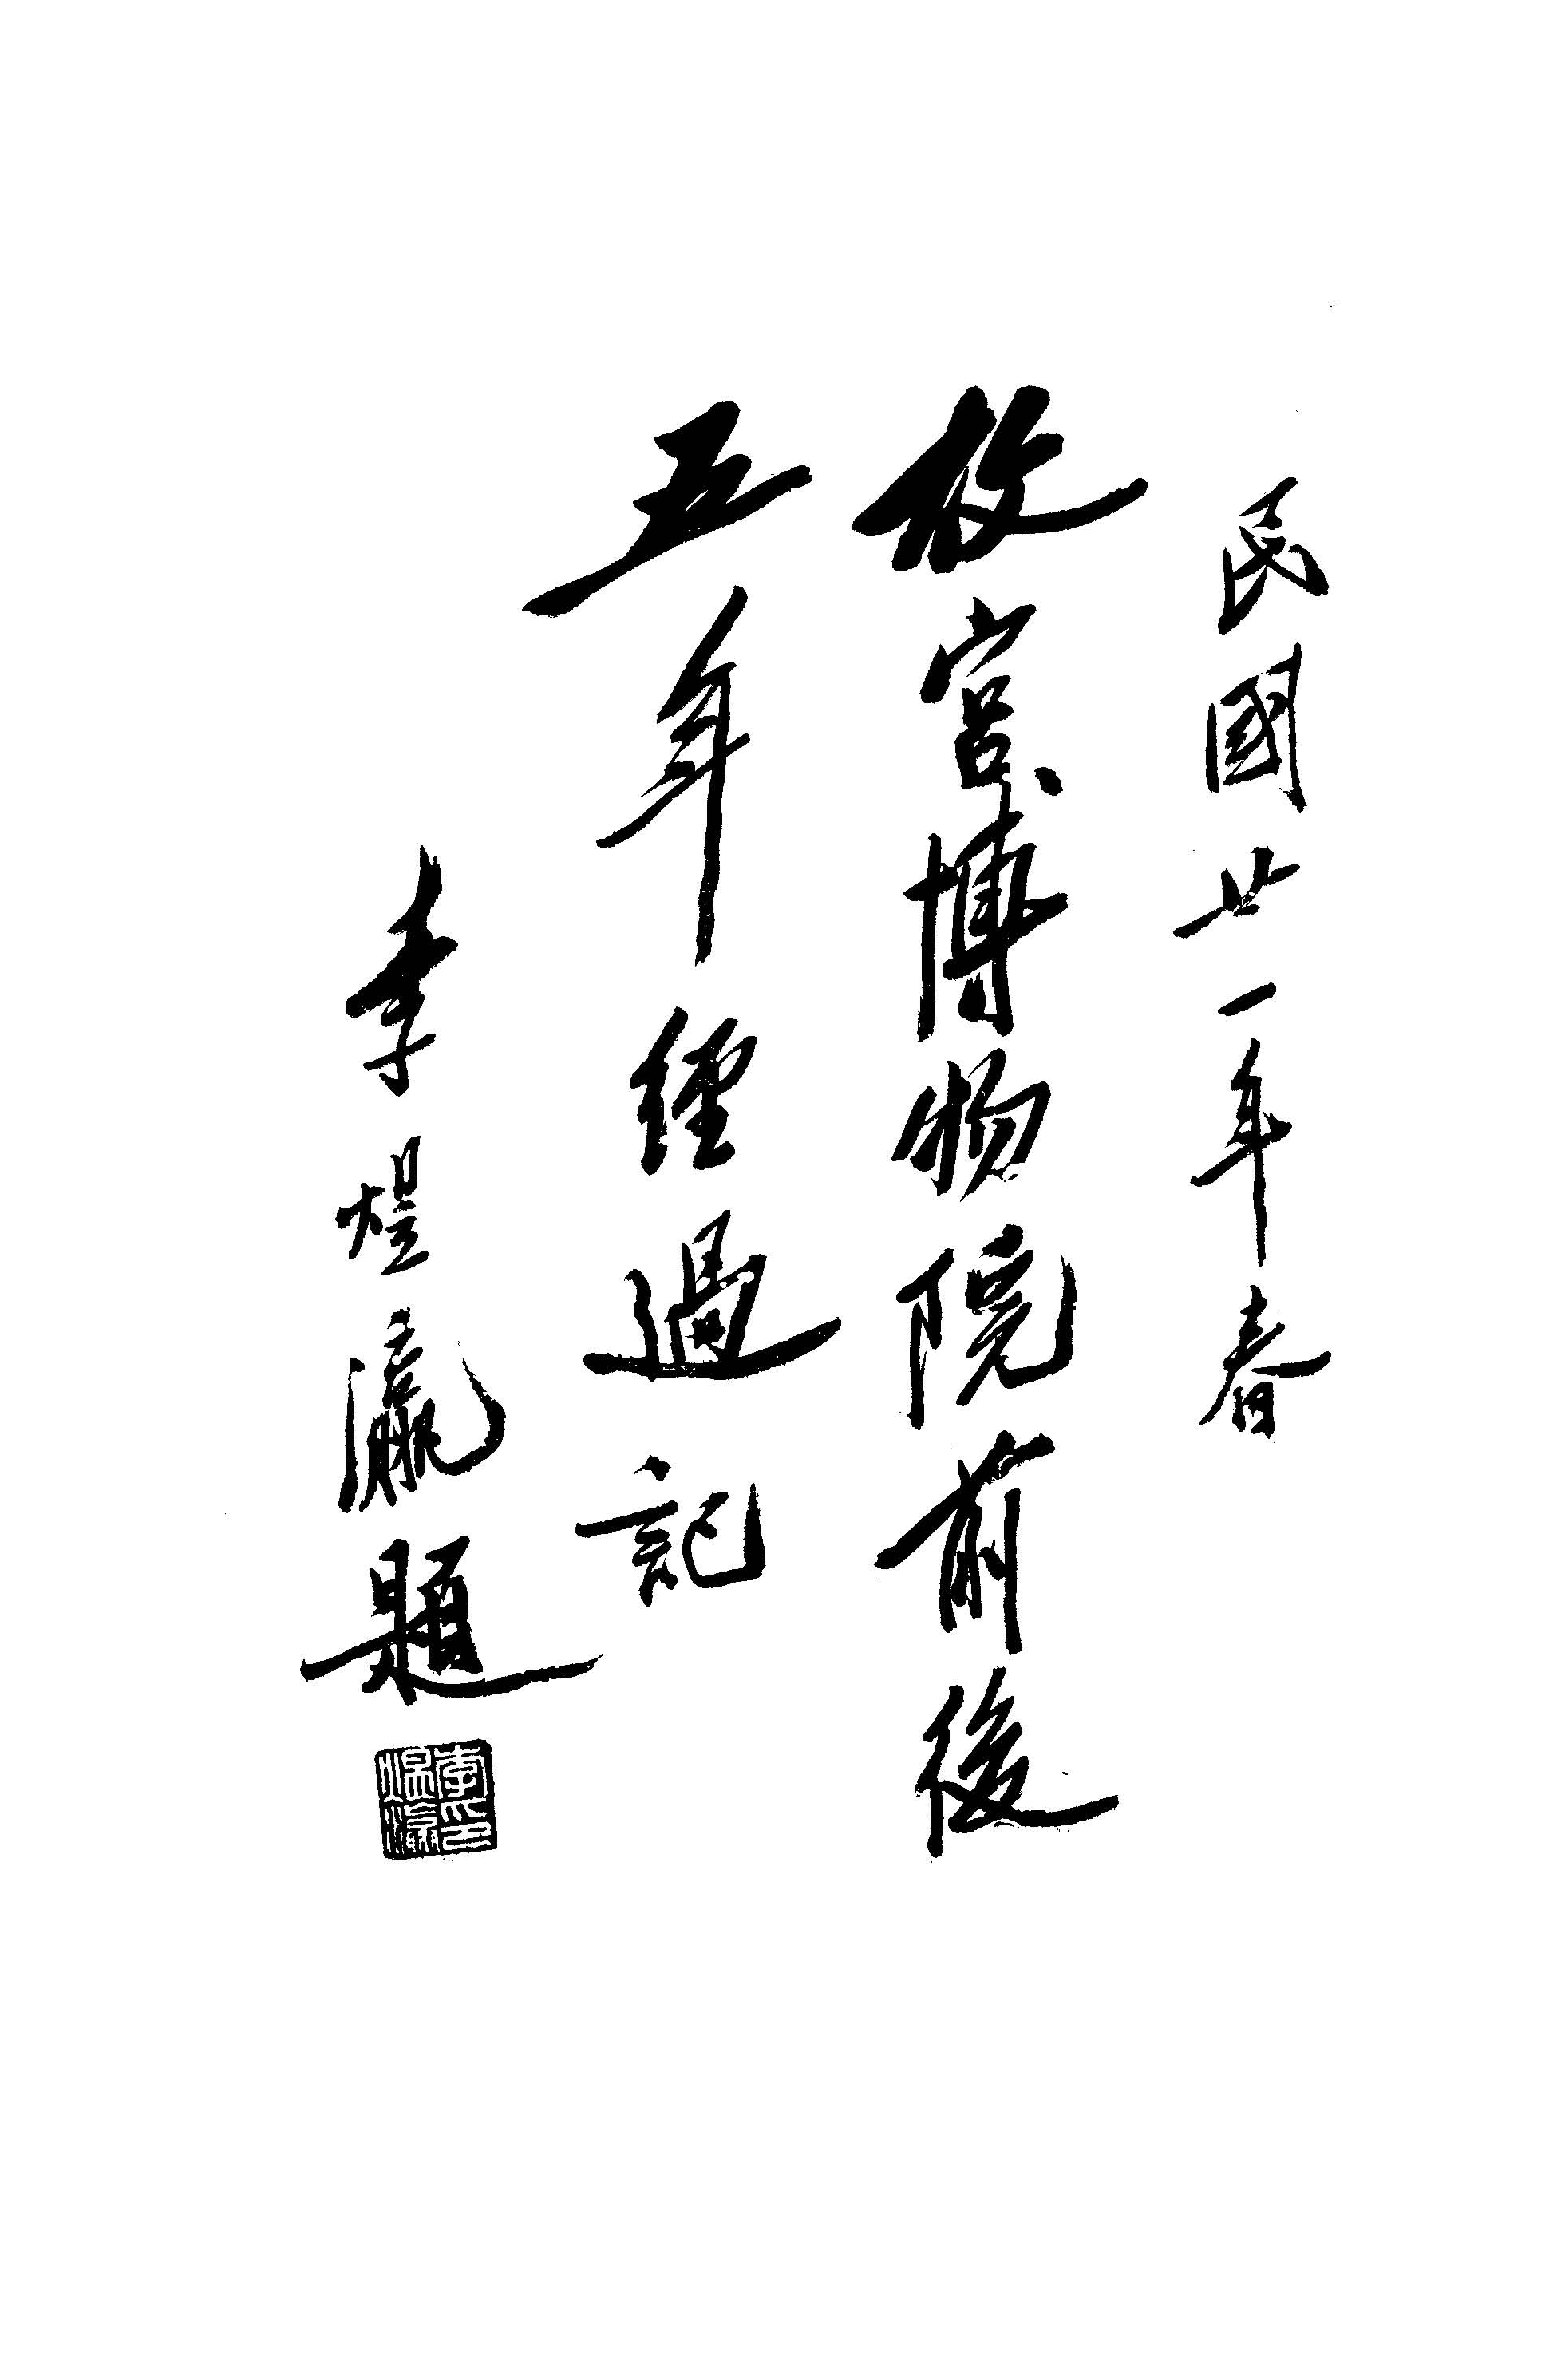 民國廿一年春
故宮博物院前後
五年經過記
李煜瀛題
李煜瀛印